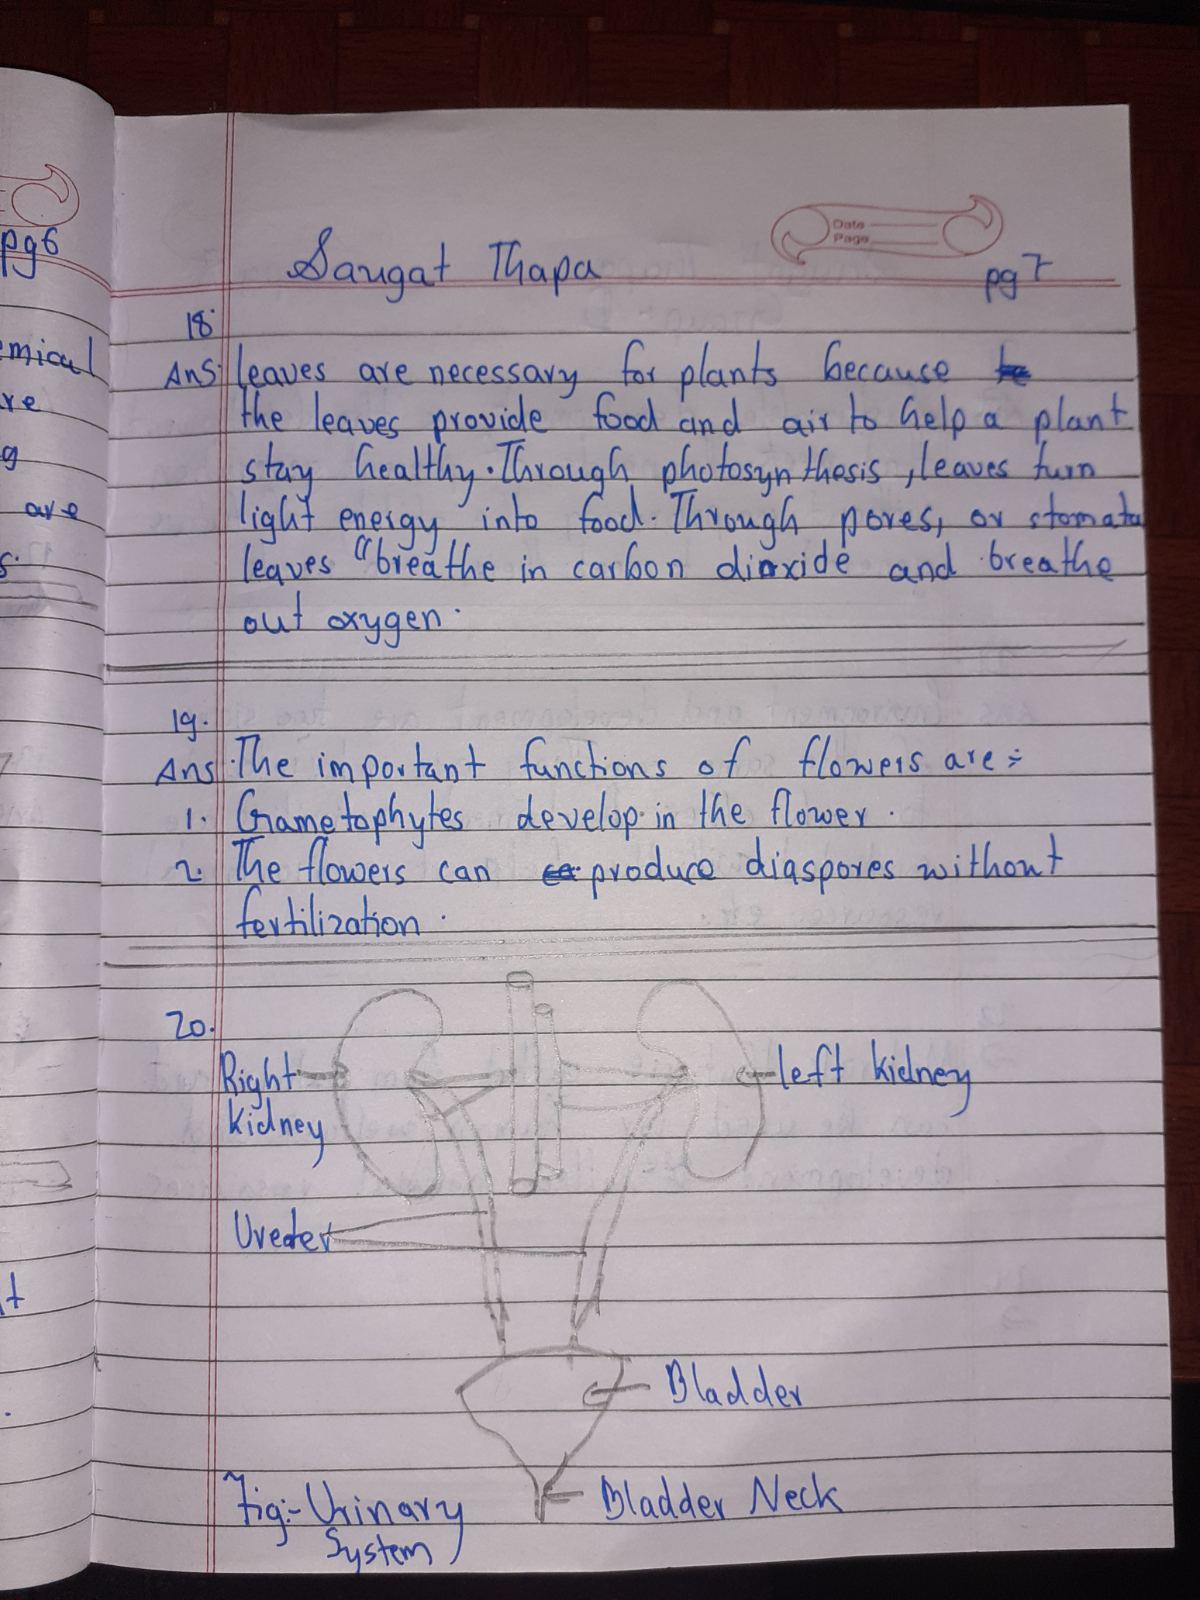 pg6
Date
Page
Saugat Thapa
pg 7
emical
re
g
are
s.
18.
Ans: leaves are necessary for plants because
the leaves provide food and air to help a plant
stay healthy. Through photosynthesis, leaves turn
light energy into food. Through pores, or stomata
leaves "breathe in carbon dioxide and breathe
out oxygen.
19.
Ans: The important functions of flowers are:-
1. Gametophytes develop in the flower.
2. The flowers can produce diaspores without
fertilization.
20.
Right
kidney
left kidney
Ureter
Bladder
Bladder Neck
Fig:- Urinary
System